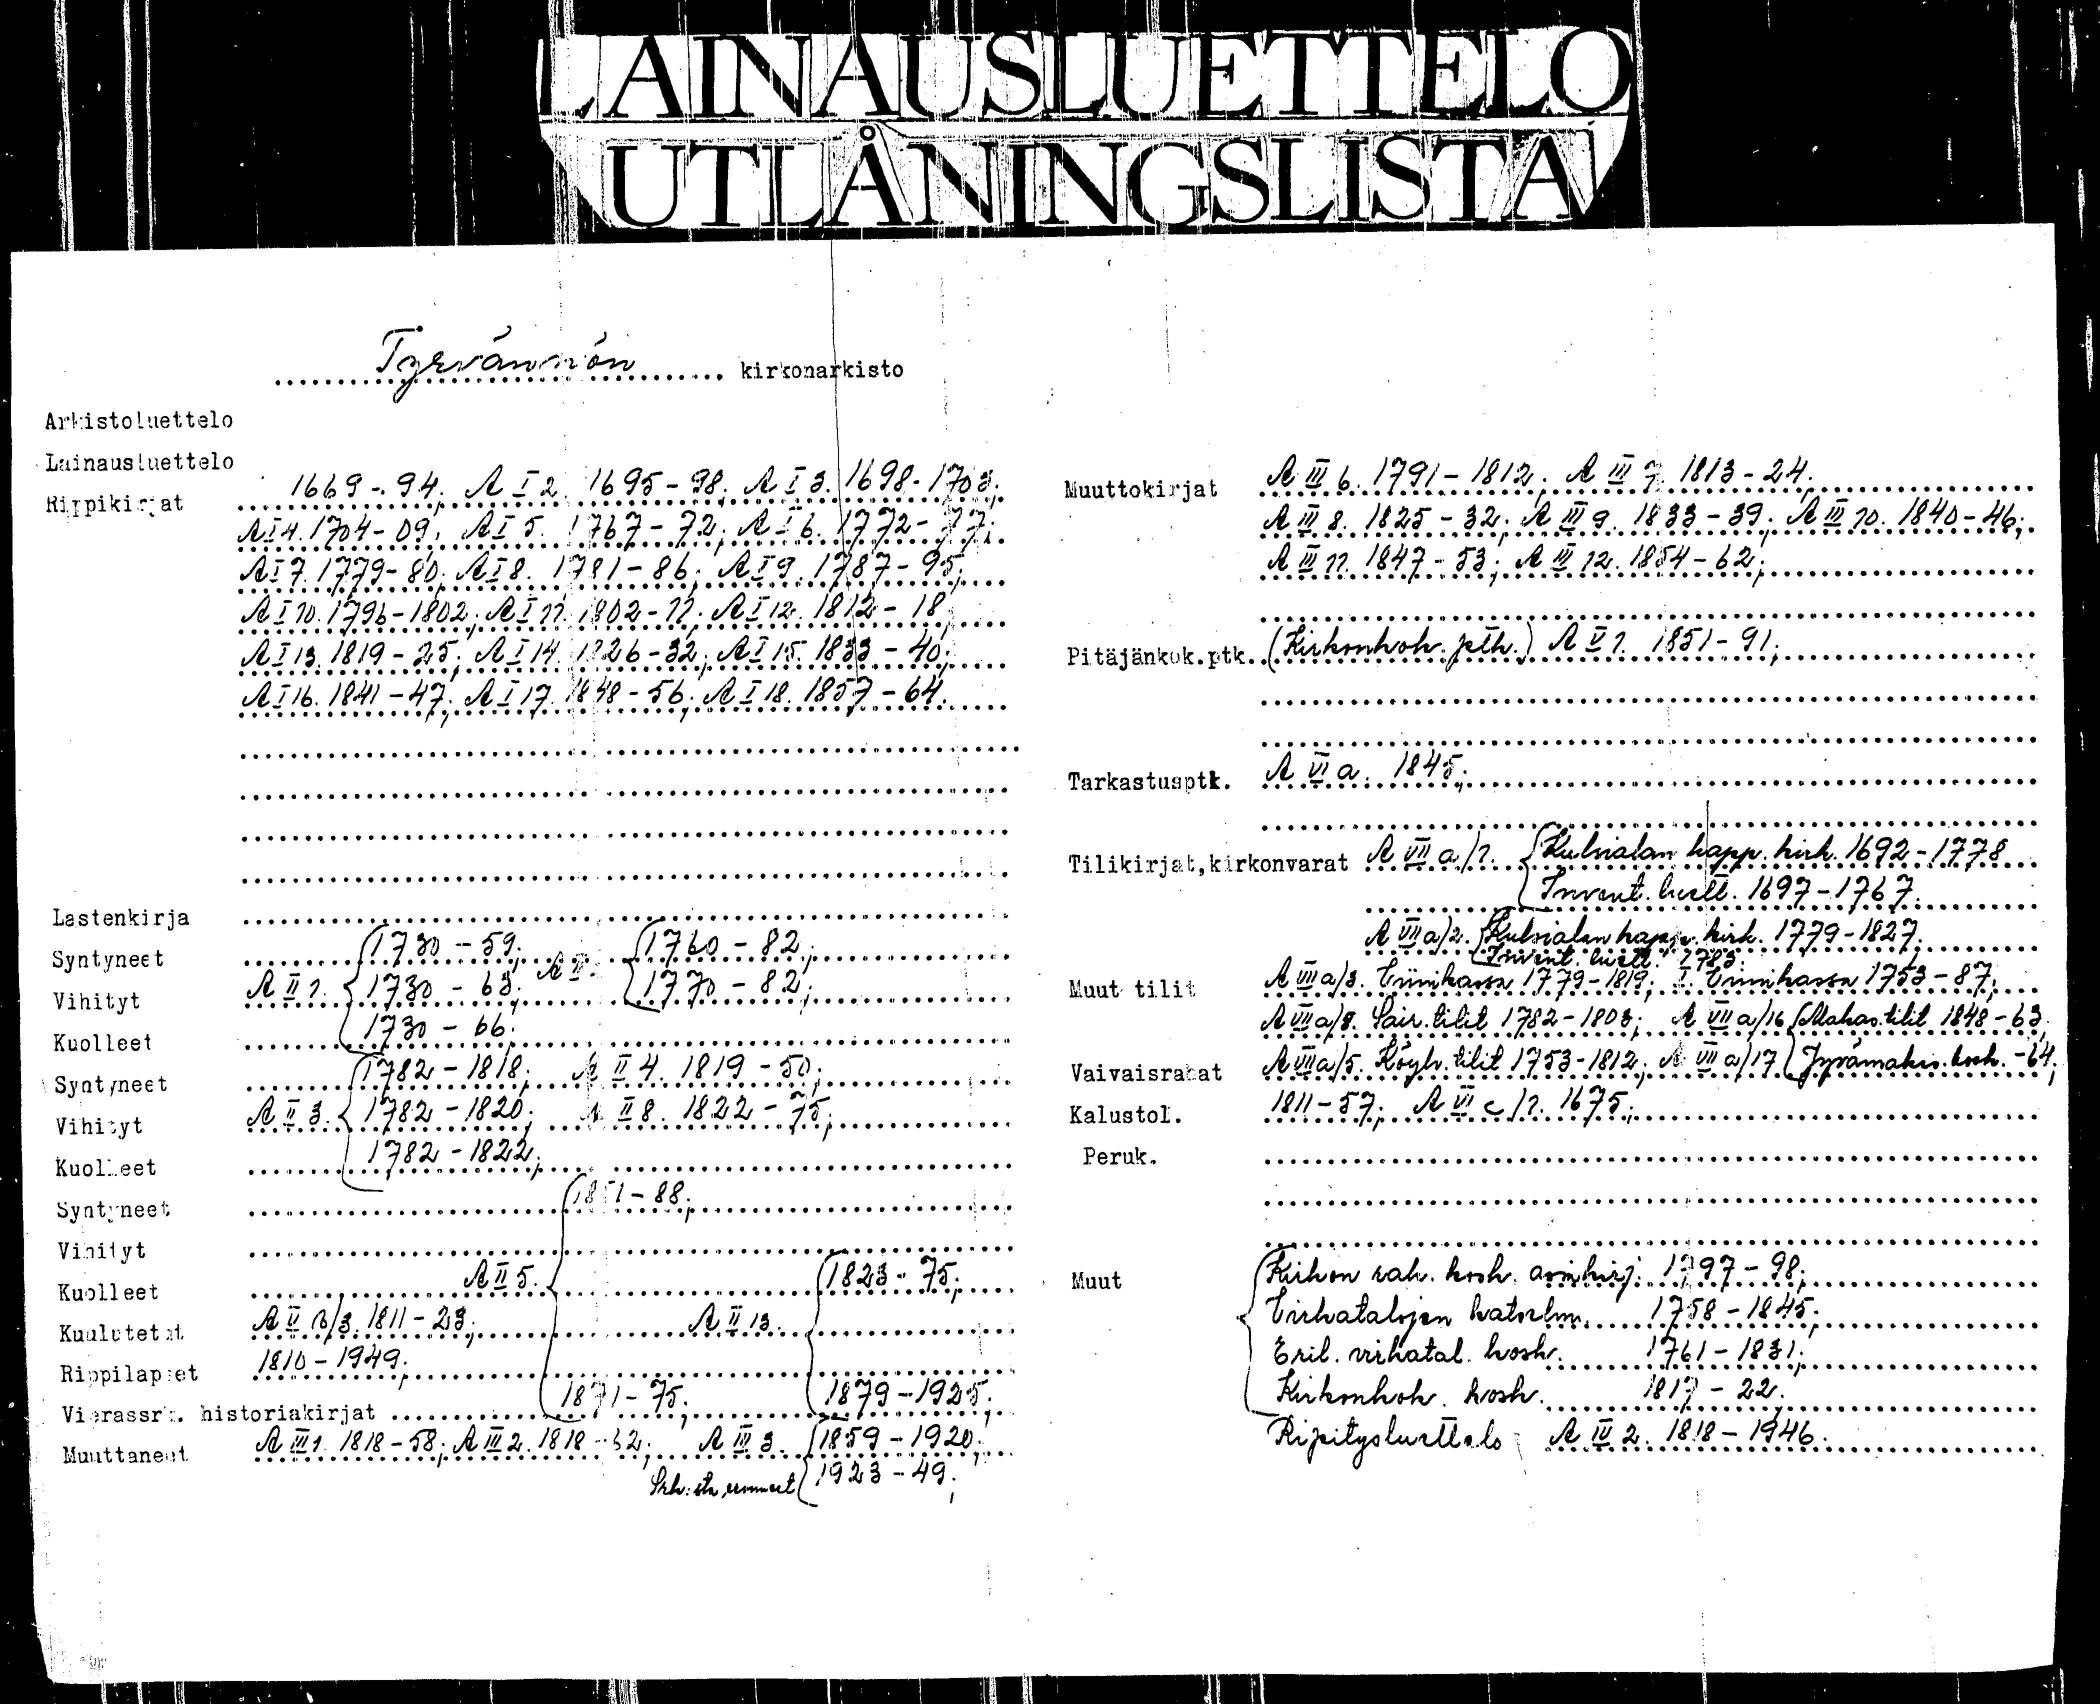 LAINAUSLUETTELO
UTLÅNINGSLISTA
Tyrvännön kirkonarkisto
Arkistoluettelo
Lainausluettelo
Rippikirjat 1669-94; A I 2. 1695-98; A I 3. 1698-1703;
A I 4. 1704-09; A I 5. 1767-72; A I 6. 1772-77;
A I 7. 1779-80; A I 8. 1781-86; A I 9. 1787-95;
A I 10. 1796-1802; A I 11. 1802-11; A I 12. 1812-18;
A I 13. 1819-25; A I 14. 1826-32; A I 15. 1833-40;
A I 16. 1841-47; A I 17. 1848-56; A I 18. 1857-64.
Lastenkirja
Syntyneet 1730-59; 1760-82;
Vihityt A II 1. 1730-63; A II 1770-82;
Kuolleet 1730-66.
Syntyneet 1782-1818; A II 4. 1819-50;
Vihityt A II 3. 1782-1820; A II 8. 1822-75;
Kuolleet 1782-1822;
Syntyneet 1851-88;
Vihityt
Kuolleet A II 5. 1823-75;
Kuulutetut 1811-23; A II 13.
Rippilapset 1810-1949;
Vierassrk. historiakirjat 1871-75; 1879-1925;
Muuttaneet A III 1. 1818-58; A III 2. 1818-62; A III 3. 1859-1920;
1923-49;
Muuttokirjat A III 6. 1791-1812; A III 7. 1813-24.
A III 8. 1825-32; A III 9. 1833-39; A III 10. 1840-46;
A III 11. 1847-53; A III 12. 1854-62;
Pitäjänkok.ptk. (Kirkonkok. ptk.) A V 1. 1851-91;
Tarkastusptk. A VI a. 1845;
Tilikirjat, kirkonvarat A VII a/1. Kulsialan kapp. kirk. 1692-1778
Invent. luett. 1697-1767.
A VII a/2. Kulsialan kapp. kirk. 1779-1827.
Invent. luett. 1783.
Muut tilit A VII a/3. Viinikassa 1779-1819; I. Viinikassa 1753-87;
A VII a/8. Sair. tilit 1782-1803; A VII a/16 Makas. tilit 1848-63,
Vaivaisrahat A VII a/5. Köyh. tilit 1753-1812; A VII a/17 Jyvämakas. kosk. -64;
Kalustol. 1811-57; A VI c/1. 1675;
Peruk.
Muut Kirkon rah. kosk. asiakirj. 1797-98;
Virkatalojen katselm. 1758-1845;
Eril. virkatal. kosk. 1761-1831;
Kirkonkok. kosk. 1817-22.
Ripitysluettelo A IV 2. 1818-1946.